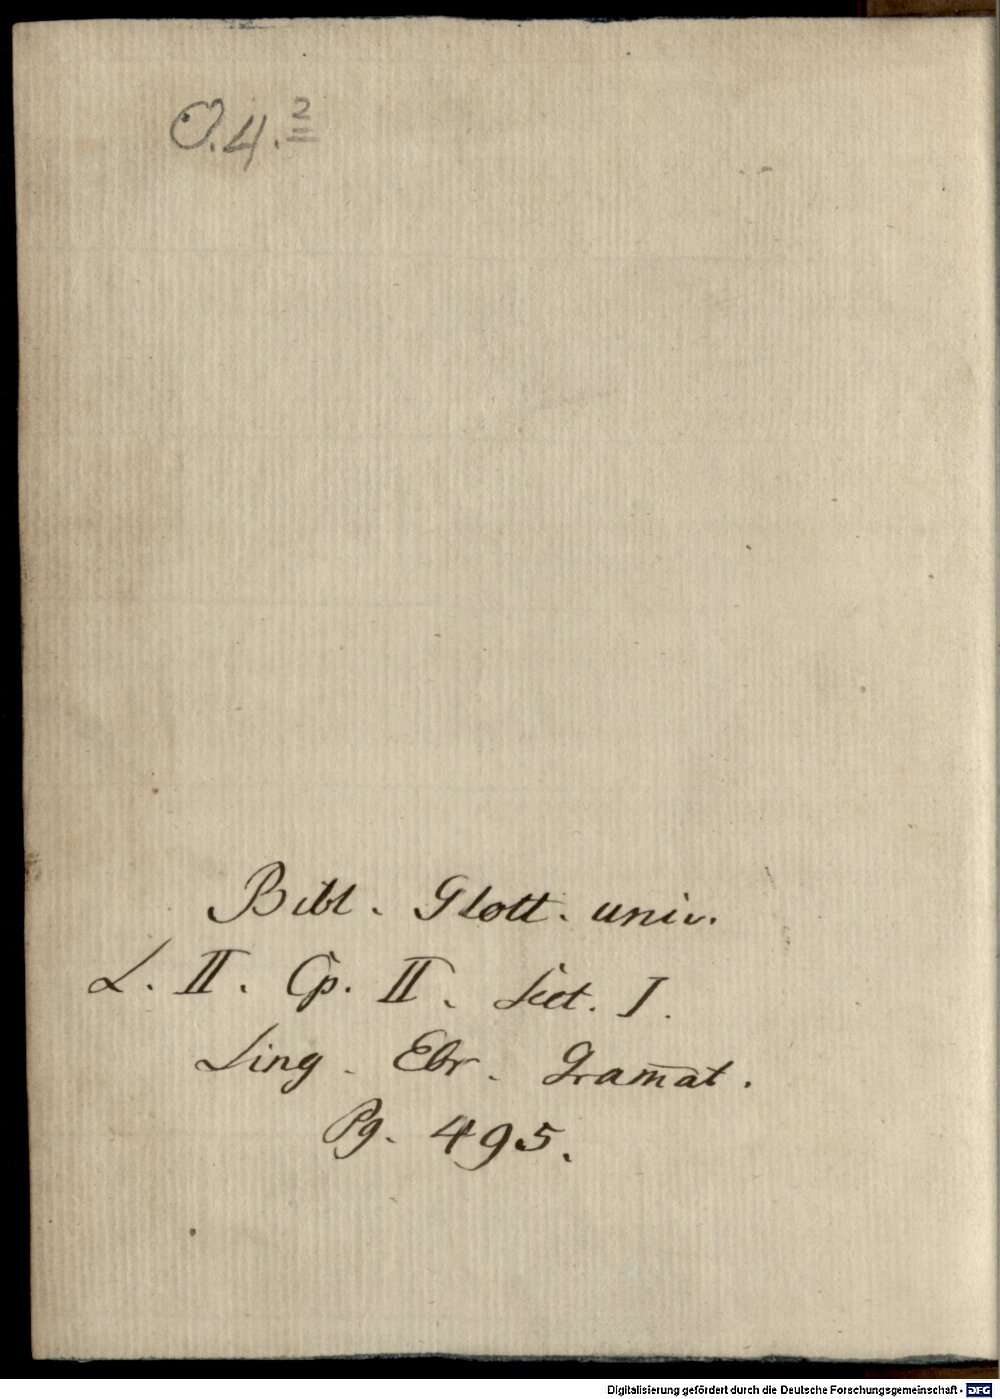 O.4.²
Bibl. Glott. univ.
L. II. Cp. II. Sect. I.
Ling. Ebr. Gram̄at.
Pg. 495.
Digitalisierung gefördert durch die Deutsche Forschungsgemeinschaft - DFG